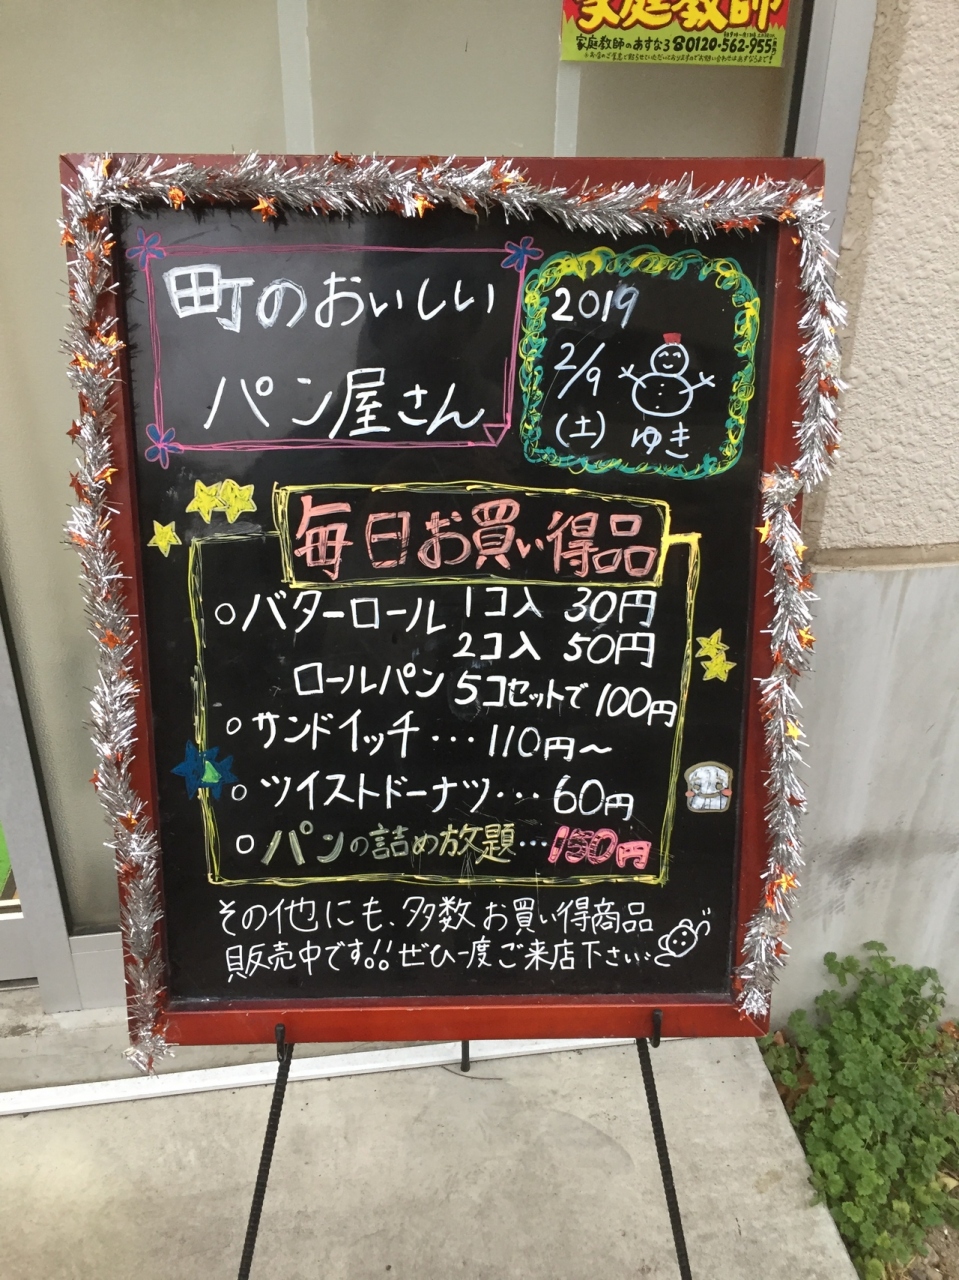 家庭教師
家庭教師のあすなろ☎0120-562-955
町のおいしい
パン屋さん
2019
2/9
(土) ゆき
毎日お買い得品
○バターロール 1コ入 30円
2コ入 50円
ロールパン 5コセットで 100円
○サンドイッチ・・・110円〜
○ツイストドーナツ・・・60円
○パンの詰め放題・・・150円
その他にも、多数お買い得商品
販売中です!!ぜひ一度ご来店下さい